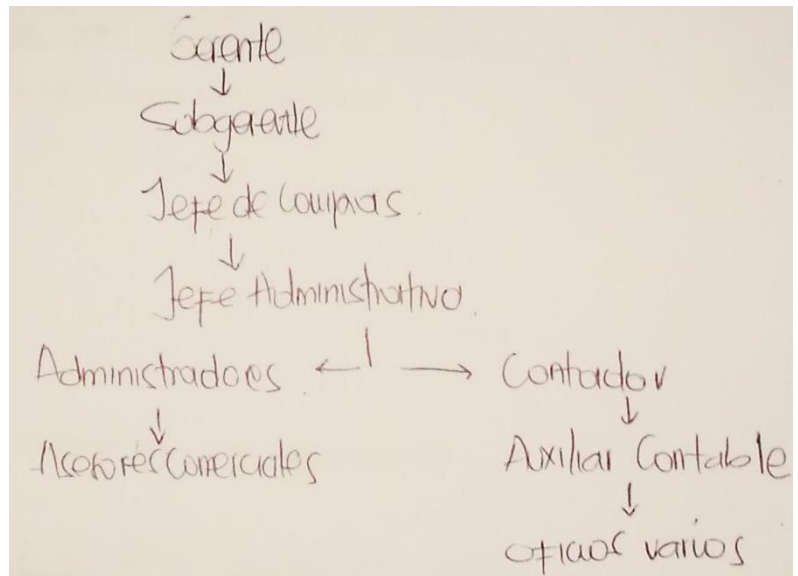 Gerente
Subgerente
Jefe de Compras.
Jefe Administrativo.
Administradores ← → Contador
Asesores Comerciales
Auxiliar Contable
Oficios varios